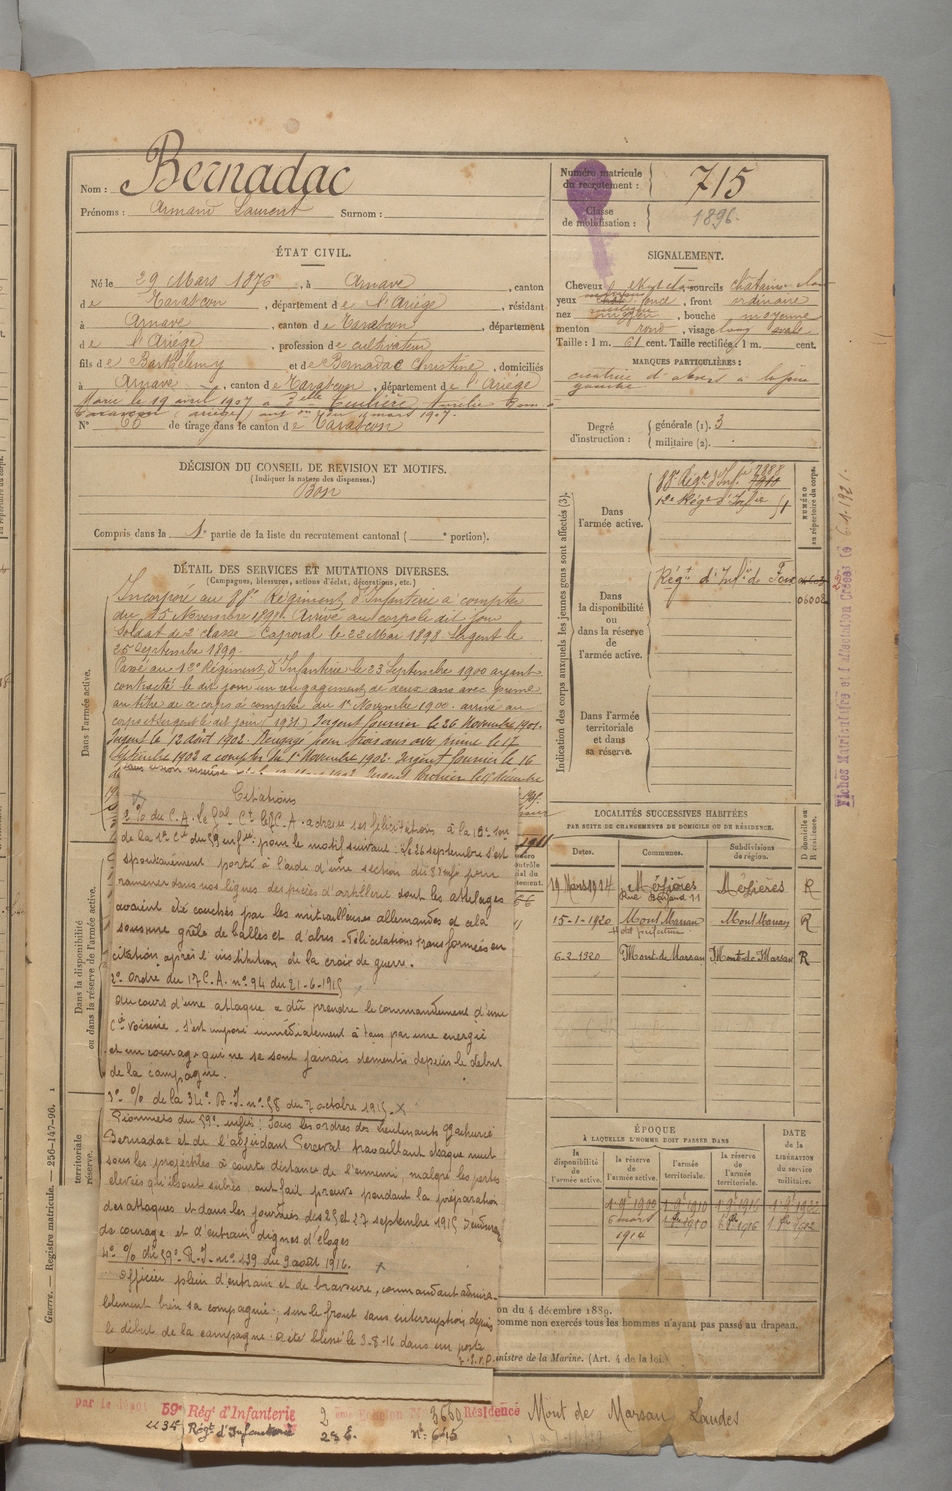 Nom : Bernadac
Prénoms : Armand Laurent Surnom :
Numéro matricule du recrutement : 715
Classe de mobilisation : 1896.
ÉTAT CIVIL.
Né le 29 Mars 1876, à Arnave, canton
de Tarascon, département de l'Ariège, résidant
à Arnave, canton de Tarascon, département
de l'Ariège, profession de cultivateur
fils de Barthélemy et de Bernadac Christine, domiciliés
à Arnave, canton de Tarascon, département de l'Ariège
Marié le 19 avril 1907 à
Tarascon (Ariège) mars 1907.
N° 60 de tirage dans le canton de Tarascon
SIGNALEMENT.
Cheveux sourcils châtains
yeux front ordinaire
nez moyen, bouche moyenne
menton rond, visage ovale
Taille : 1 m. 61 cent. Taille rectifiée : 1 m. cent.
MARQUES PARTICULIÈRES :
cicatrice à la joue
gauche
Degré d'instruction : générale (1). 3
militaire (2).
DÉCISION DU CONSEIL DE REVISION ET MOTIFS.
(Indiquer la nature des dispenses.)
Bon
Compris dans la 1e partie de la liste du recrutement cantonal ( e portion).
DÉTAIL DES SERVICES ET MUTATIONS DIVERSES.
(Campagnes, blessures, actions d'éclat, décorations, etc.)
Dans l'armée active.
Incorporé au Régiment d'Infanterie à compter
du 15 Novembre Arrivé au corps le dit jour
Soldat de 2e classe Caporal le 22 Mai 1899 Sergent le
25 Septembre 1899.
Passé au 12e Régiment d'Infanterie le 23 Septembre 1900 ayant
contracté le dit jour un rengagement de deux ans avec prime
au titre de ce corps à compter du 1er Novembre 1900. arrivé au
corps et sergent le dit jour Sergent fourrier le 26 Novembre 1901.
Sergent le 12 août 1902. Rengagé pour trois ans avec prime le 17
Septembre 1902 à compter du 1er Novembre 1902. Sergent fourrier le 16
Indication des corps auxquels les jeunes gens sont affectés (3).
Dans l'armée active.
Régt d'Inf. 2888
12e Régt d'Infie
NUMÉRO au répertoire du corps.
Dans la disponibilité ou dans la réserve de l'armée active.
Régt d'Infie de Foix
06008
Dans l'armée territoriale et dans sa réserve.
Fiches Matriculaire et d'affectation Créées le 6.1.1921.
LOCALITÉS SUCCESSIVES HABITÉES
PAR SUITE DE CHANGEMENTS DE DOMICILE OU DE RÉSIDENCE.
Dates. Communes. Subdivisions de région. D domicile ou R résidence.
19 Mars 1914 Mézières Mézières R
Rue Bayard 11
15-1-1920 Mont Marsan Mont Marsan R
6-2-1920 Mont de Marsan Mont de Marsan R
ÉPOQUE
À LAQUELLE L'HOMME DOIT PASSER DANS
DATE DE LA LIBÉRATION du service militaire.
la disponibilité de l'armée active. la réserve de l'armée active. l'armée territoriale. la réserve de l'armée territoriale.
1 9 1900 1 9 1910 1 9 1916 1 9 1922
6 mars
1914
Dans la disponibilité ou dans la réserve de l'armée active.
territoriale
réserve.
Guerre. — Registre matricule. — 256-147-96. 1
Citations
1° % du C.A. le Gal Ct le C.A. adresse ses félicitations à la
de la Cie du 59 infie pour le motif suivant : le 26 septembre s'est
spontanément porté à l'aide d'une section du pour
ramener dans nos lignes des pièces d'artillerie dont les attelages
avaient été couchés par les mitrailleuses allemandes et cela
sous une grêle de balles et d'obus - Félicitations transformées en
citation après l'institution de la croix de guerre.
2° Ordre du 17 C.A. n° 94 du 21-6-1915
Au cours d'une attaque a dû prendre le commandement d'une
Cie voisine. S'est imposé immédiatement à tous par une énergie
et un courage qui ne se sont jamais démentis depuis le début
de la campagne.
3° % de la 34e D.I. n° 58 du 7 octobre 1915
Pionniers du 59e infie : Sous les ordres des lieutenants
Bernadac et de l'adjudant Perceval travaillant chaque nuit
sous les projectiles à courte distance de l'ennemi, malgré les pertes
élevées qu'ils ont subies, ont fait preuve pendant la préparation
des attaques et dans les journées des 25 et 27 septembre 1915 d'endurance
de courage et d'entrain dignes d'éloges
4° % du 59e R.I. n° 139 du 9 août 1916.
Officier plein d'entrain et de bravoure, commandant admira-
blement bien sa compagnie ; sur le front sans interruption depuis
le début de la campagne. A été blessé le 3-8-16 dans un poste
T.S.V.P.
on du 4 décembre 1889.
comme non exercés tous les hommes n'ayant pas passé au drapeau.
inistre de la Marine. (Art. 4 de la loi.)
par le dépôt 59e Régt d'Infanterie 2 ème Echelon N° 3660 Résidence Mont de Marsan Landes
Régt d'Infanterie n° 645